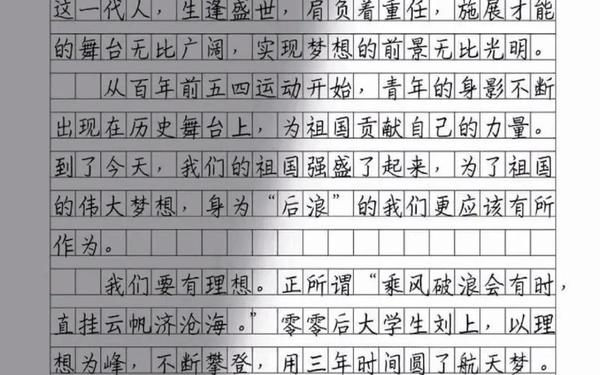 这一代人，生逢盛世，肩负着重任，施展才能
的舞台无比广阔，实现梦想的前景无比光明。
从百年前五四运动开始，青年的身影不断
出现在历史舞台上，为祖国贡献自己的力量。
到了今天，我们的祖国强盛了起来，为了祖国
的伟大梦想，身为“后浪”的我们更应该有所
作为。
我们要有理想。正所谓“乘风破浪会有时，
直挂云帆济沧海。”零零后大学生刘上，以理
想为峰，不断攀登，用三年时间圆了航天梦。